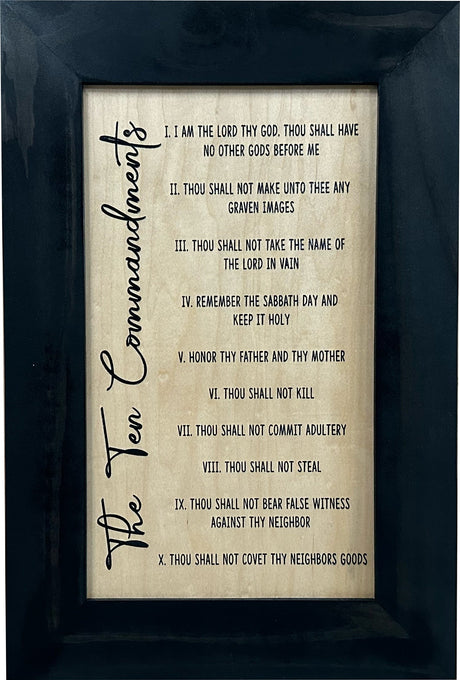 The Ten Commandments
I. I AM THE LORD THY GOD. THOU SHALL HAVE
NO OTHER GODS BEFORE ME
II. THOU SHALL NOT MAKE UNTO THEE ANY
GRAVEN IMAGES
III. THOU SHALL NOT TAKE THE NAME OF
THE LORD IN VAIN
IV. REMEMBER THE SABBATH DAY AND
KEEP IT HOLY
V. HONOR THY FATHER AND THY MOTHER
VI. THOU SHALL NOT KILL
VII. THOU SHALL NOT COMMIT ADULTERY
VIII. THOU SHALL NOT STEAL
IX. THOU SHALL NOT BEAR FALSE WITNESS
AGAINST THY NEIGHBOR
X. THOU SHALL NOT COVET THY NEIGHBORS GOODS